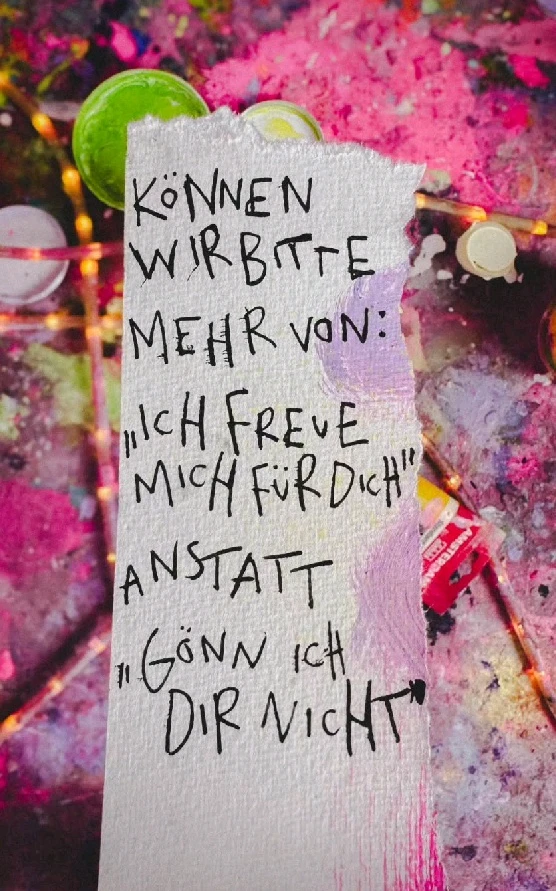 KÖNNEN
WIR BITTE
MEHR VON:
„ICH FREUE
MICH FÜR DICH"
ANSTATT
„GÖNN ICH
DIR NICHT"
AMSTERDAM